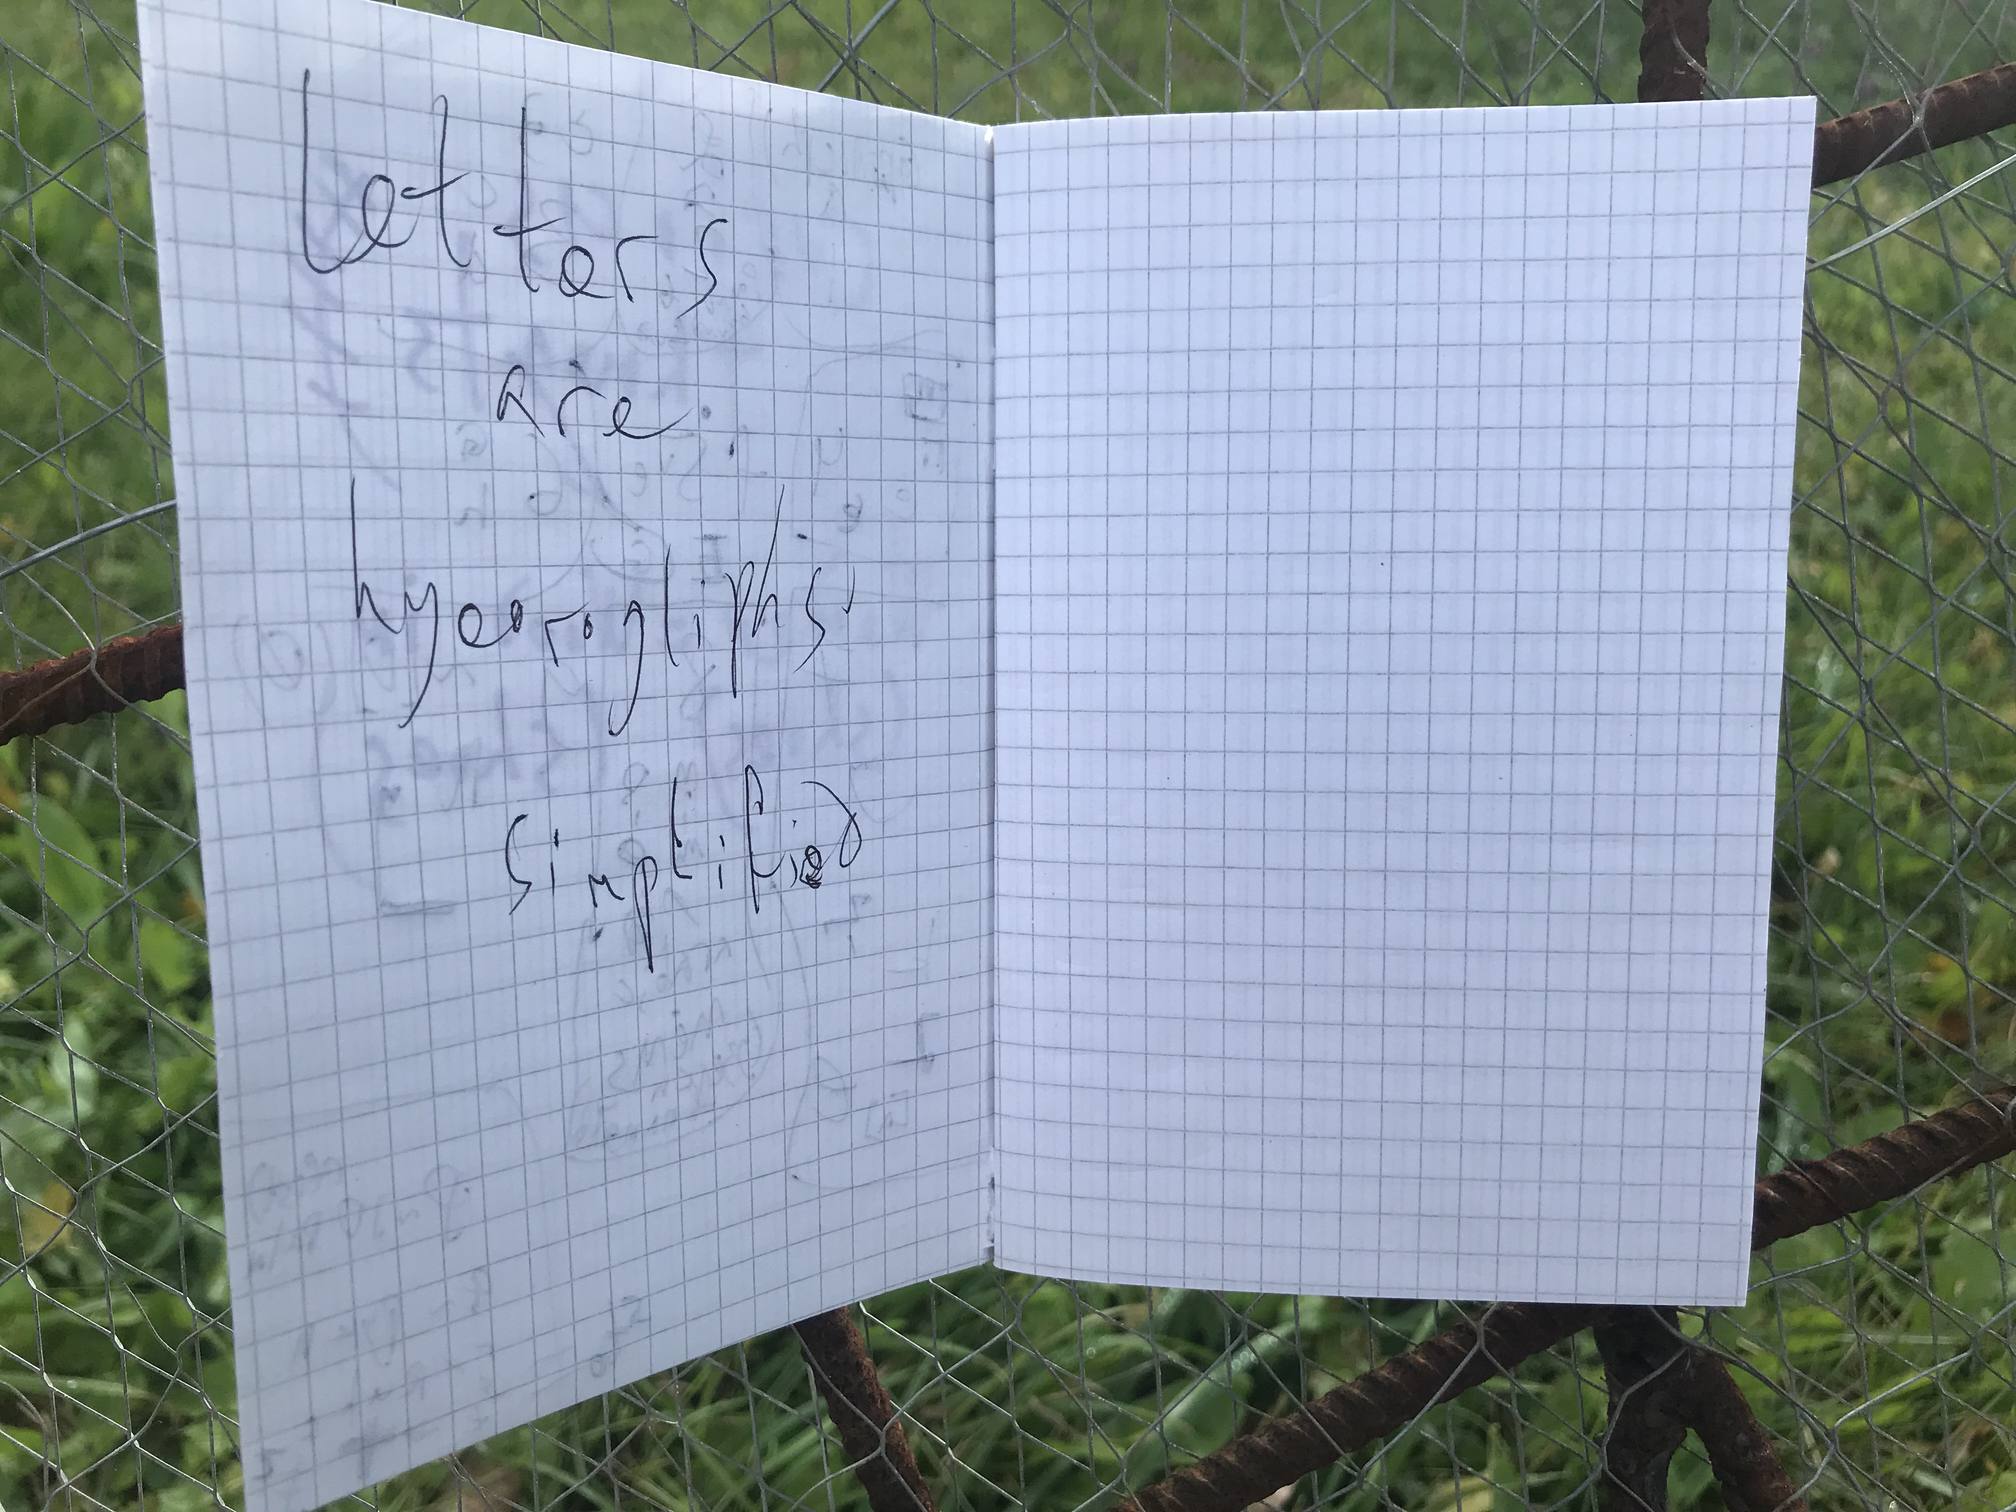 Letters
are
hyeorogliphs
simplified